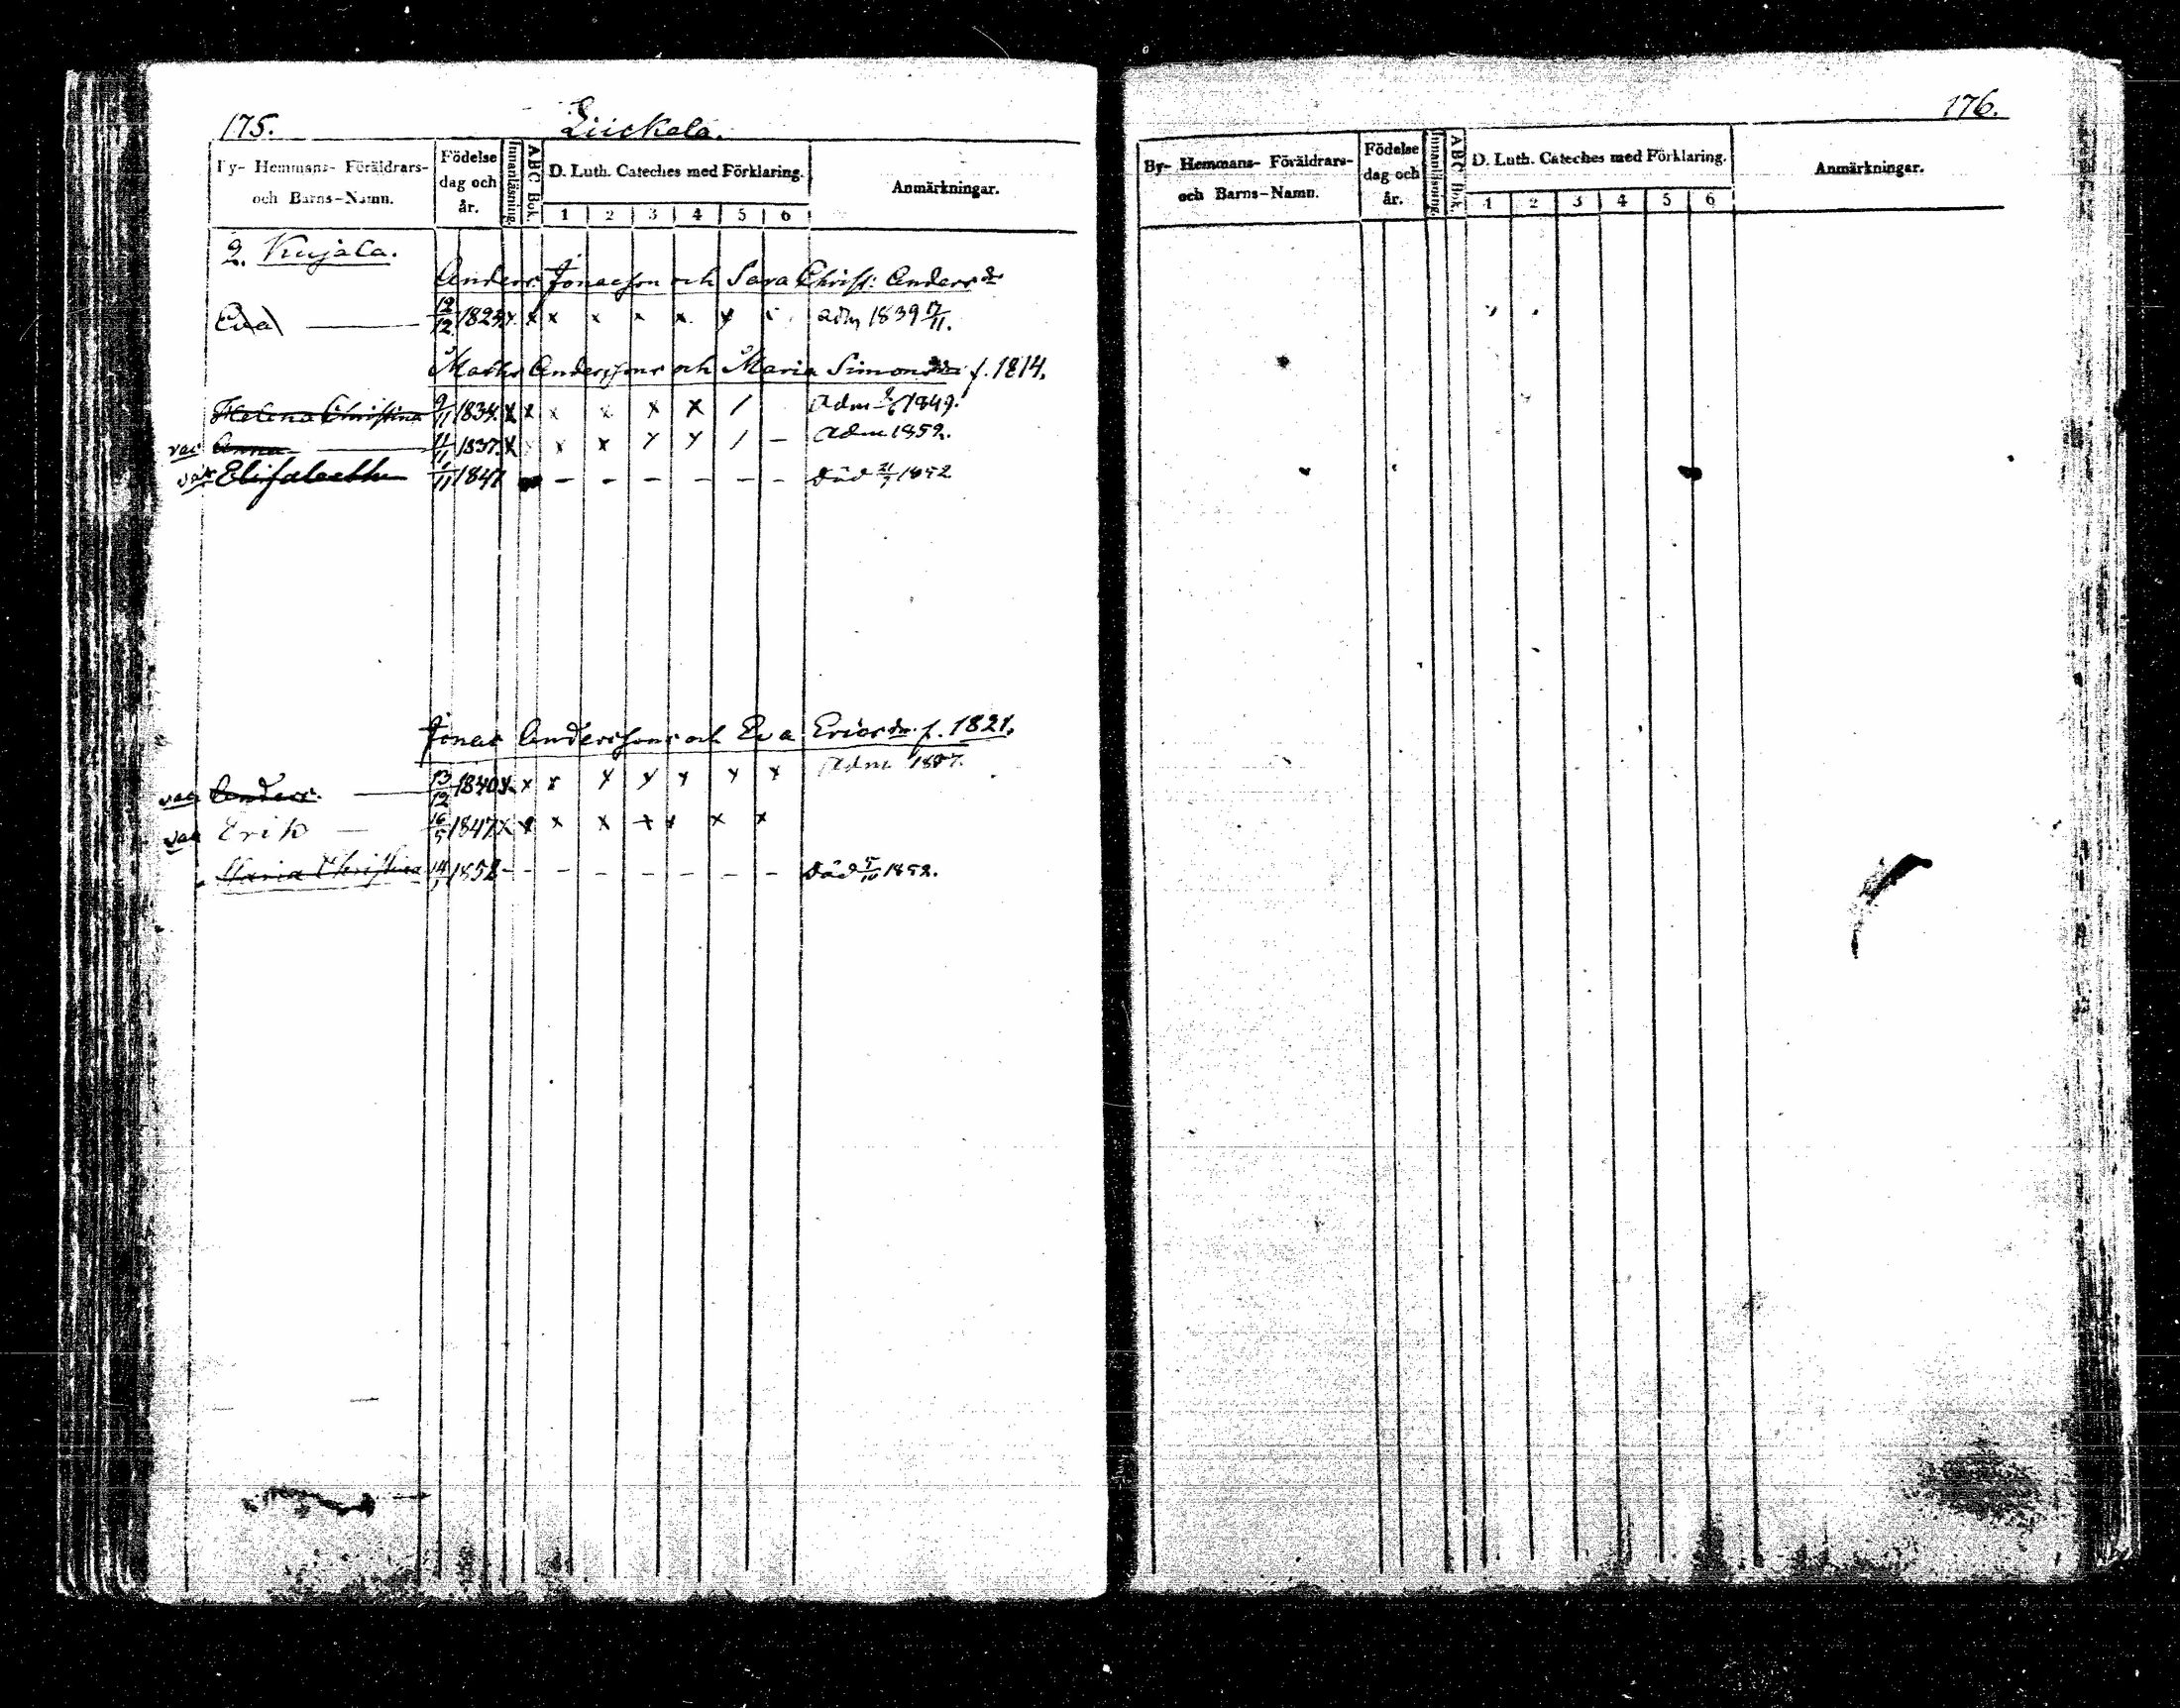 175. Liickala.
By- Hemmans- Föräldrars- och Barns-Namn. Födelse dag och år. Innanläsning. ABC Bok. D. Luth. Cateches med Förklaring. 1 2 3 4 5 6 Anmärkningar.
2. Kujala.
Anders Jonasson och Sara Christ: Andersdr
Eva 12/12 1823 x x x x x x x adm 1839 17/11.
Matts Anderssons och Maria Simonsdr f. 1814.
Helena Christina 9/11 1834. x x x x x x / Adm 1849.
vac Anna 4/11 1837. x x x x x / - Adm 1852.
vac Elisabeth 1/11 1847 - - - - - - död 21/7 1852
Jonas Anderssons och Eva Ericsdr. f. 1821.
vac Anders. 13/12 1840 x x x x x x x x Adm 1857.
vac Erik 16/5 1847 x x x x x x x x
Maria Christina 14/1 1852 - - - - - - - död 5/10 1852.
176.
By- Hemmans- Föräldrars- och Barns-Namn. Födelse dag och år. Innanläsning. ABC Bok. D. Luth. Cateches med Förklaring. 1 2 3 4 5 6 Anmärkningar.